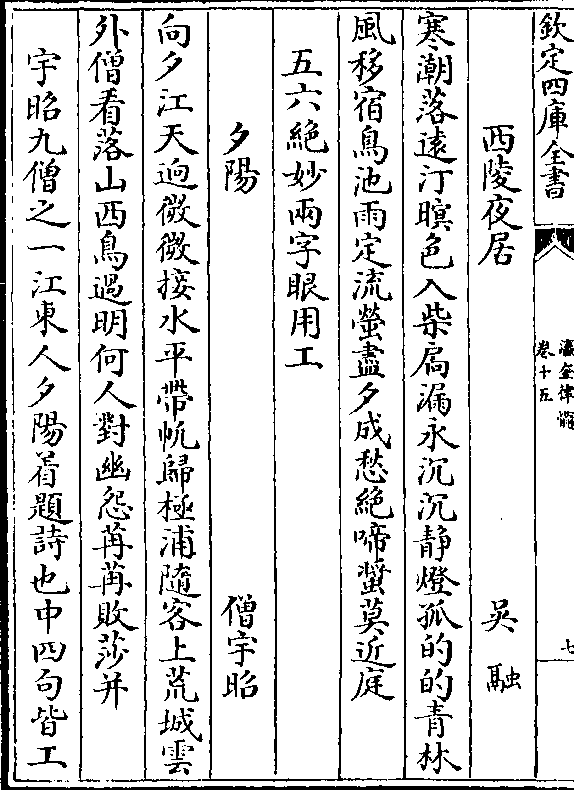 欽定四庫全書
瀛奎律髓
卷十五
七
西陵夜居 吳融
寒潮落遠汀暝色入柴扃漏永沉沉静燈孤的的青林
風移宿鳥池雨定流螢盡夕成愁絶啼螿莫近庭
五六絶妙兩字眼用工
夕陽 僧宇昭
向夕江天逈微微接水平帶帆歸極浦隨客上荒城雲
外僧看落山西鳥過明何人對幽怨苒苒敗莎并
宇昭九僧之一江東人夕陽着題詩也中四句皆工